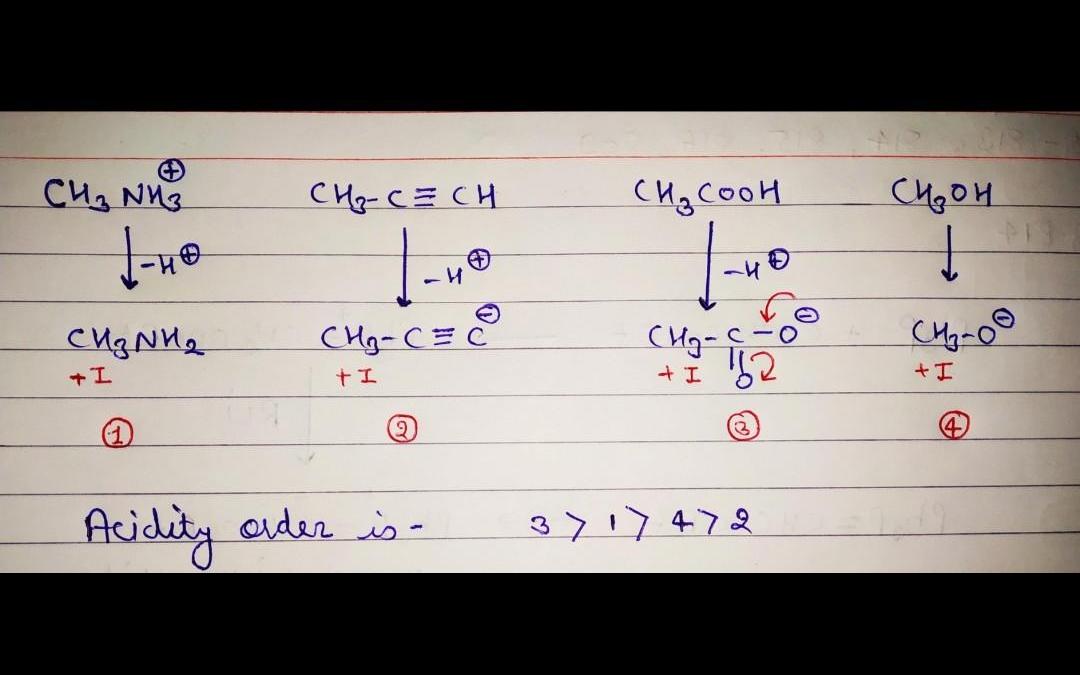 CH3 NH3⊕ CH3-C≡CH CH3COOH CH3OH
-H⊕ -H⊕ -H⊕
CH3NH2 CH3-C≡C⊖ CH3-C-O⊖ CH3-O⊖
+I +I +I O +I
① ② ③ ④
Acidity order is - 3 > 1 > 4 > 2